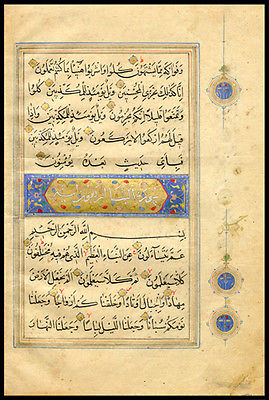 وَفَوَاكِهَ مِمَّا يَشْتَهُونَ كُلُوا وَاشْرَبُوا هَنِيئًا بِمَا كُنْتُمْ تَعْمَلُونَ
إِنَّا كَذَلِكَ نَجْزِي الْمُحْسِنِينَ وَيْلٌ يَوْمَئِذٍ لِلْمُكَذِّبِينَ كُلُوا
وَتَمَتَّعُوا قَلِيلًا إِنَّكُمْ مُجْرِمُونَ وَيْلٌ يَوْمَئِذٍ لِلْمُكَذِّبِينَ وَإِذَا
قِيلَ لَهُمُ ارْكَعُوا لَا يَرْكَعُونَ وَيْلٌ يَوْمَئِذٍ لِلْمُكَذِّبِينَ
فَبِأَيِّ حَدِيثٍ بَعْدَهُ يُؤْمِنُونَ
بِسْمِ اللَّهِ الرَّحْمَنِ الرَّحِيمِ
عَمَّ يَتَسَاءَلُونَ عَنِ النَّبَإِ الْعَظِيمِ الَّذِي هُمْ فِيهِ مُخْتَلِفُونَ
كَلَّا سَيَعْلَمُونَ ثُمَّ كَلَّا سَيَعْلَمُونَ أَلَمْ نَجْعَلِ الْأَرْضَ
مِهَادًا وَالْجِبَالَ أَوْتَادًا وَخَلَقْنَاكُمْ أَزْوَاجًا وَجَعَلْنَا
نَوْمَكُمْ سُبَاتًا وَجَعَلْنَا اللَّيْلَ لِبَاسًا وَجَعَلْنَا النَّهَارَ